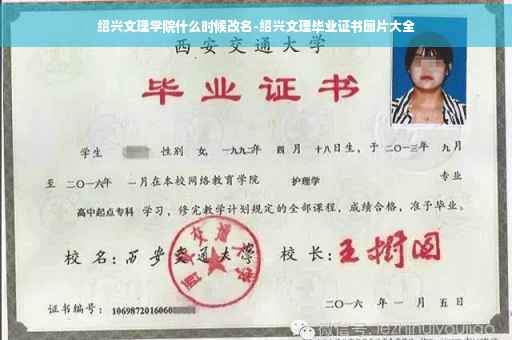 绍兴文理学院什么时候改名-绍兴文理毕业证书图片大全
西安交通大学
毕业证书
学生 性别 女, 一九九二年 四 月 十八日生, 于 二〇一三年 九月
至 二〇一六年 一月在本校网络教育学院 护理学 专业
高中起点专科 学习, 修完教学计划规定的全部课程, 成绩合格, 准予毕业。
校 名: 西安交通大学 校 长: 王树国
西安交通大学
证书编号: 1069872016060
二〇一六 年 一 月 五 日
微信号: jezhinuiyoujiao